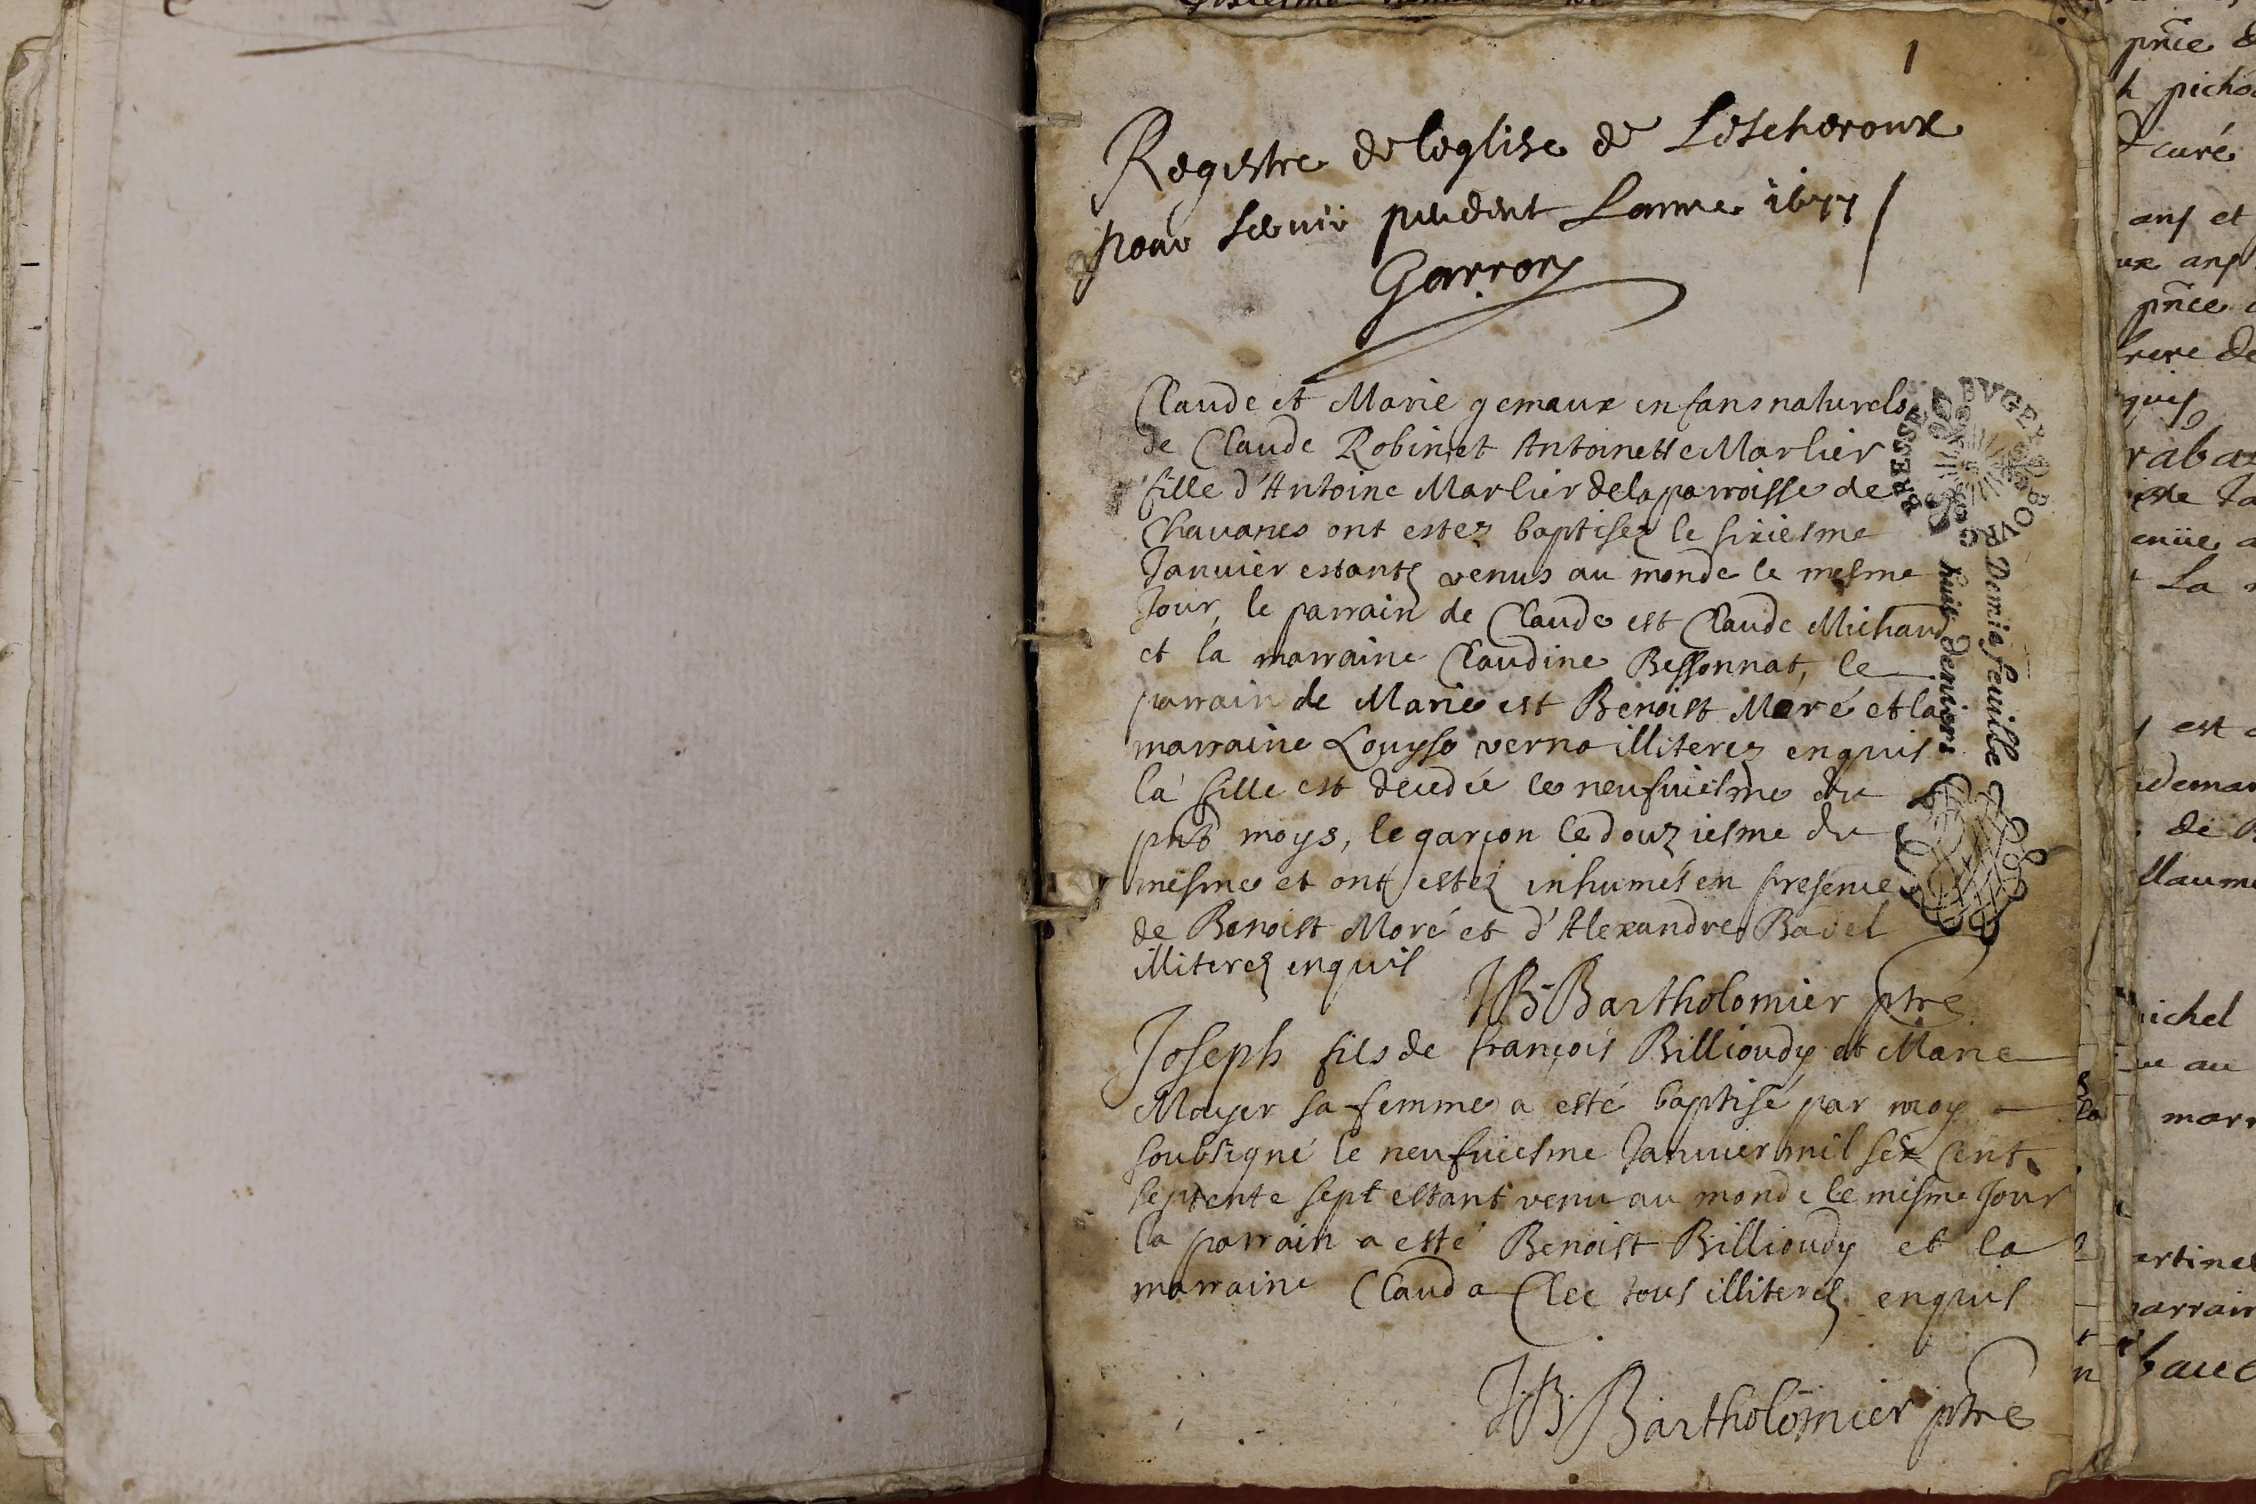 1
Registre de leglise de Lescheroux
pour servir pendent Lannee 1677
Garron
Claude et Marie gemaux enfans naturels
de Claude Robin et Antoinette Marlier
fille d'Antoine Marlier de la parroisse de
Chavanes ont estez baptisez le sixiesme
Janvier estantz venus au monde le mesme
Jour, le parrain de Claude est Claude Michaud
et la marraine Claudine Bessonnat, le
parrain de Marie est Benoist Moré et la
marraine Louyse verno illiterez enquis
la fille est decedée le neufviesme du
pnt moys, le garçon le douziesme du
mesme et ont estez inhumés en presence
de Benoist Moré et d'Alexandre Bavel
illiterez enquis
JB Bartholomier ptre
Joseph fils de françois Billioudy et Marie
Moyer sa femme a esté baptisé par moy
soubsigné le neufviesme Janvier mil six cent
septente sept estant venu au monde le mesme Jour
la parrain a esté Benoist Billioudy et la
marraine Clauda Clec tous illiterez enquis
J.B. Bartholomier ptre
BRESSE BVGEY
Demie feuille
huit deniers
pnce
h
curé
ans et
ans
pnce
de
La
est
de
ichel
au
parrain